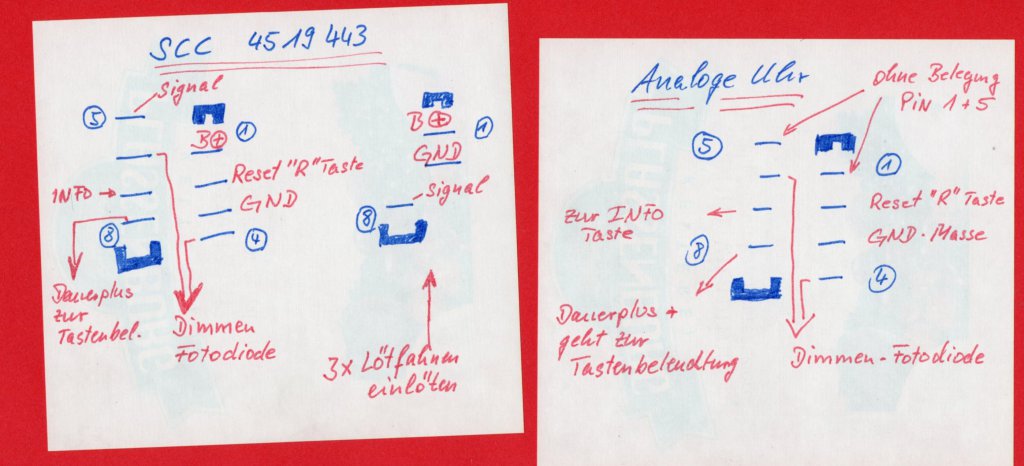 SCC 4519443
Signal
5
B+
1
INFO
Reset "R" Taste
GND
8
4
Dauerplus
zur
Tastenbel.
Dimmen
Fotodiode
B+
1
GND
Signal
8
3x Lötfahnen
einlöten
Analoge Uhr
ohne Belegung
PiN 1+5
5
1
zur INFO
Taste
Reset "R" Taste
GND-Masse
8
4
Dauerplus +
geht zur
Tastenbeleuchtung
Dimmen-Fotodiode